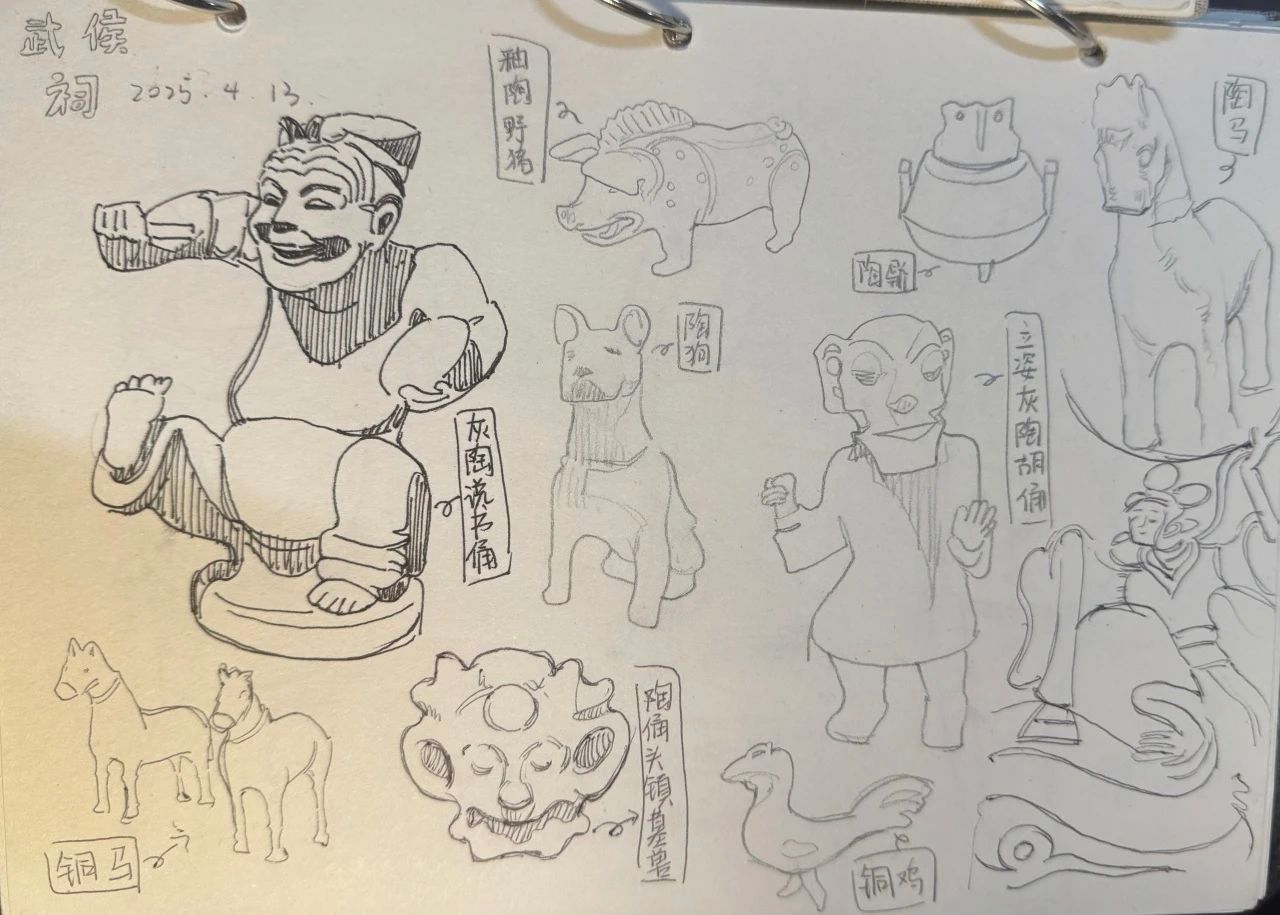 武侯
祠 2025.4.13.
釉陶野猪
陶马
陶狗
立姿灰陶胡俑
灰陶说书俑
陶俑头镇墓兽
铜马
铜鸡